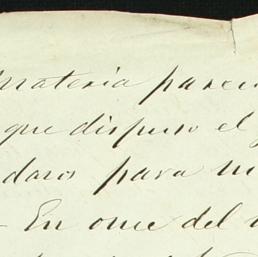 materia parec
que dispuso el
daros para
- En once del